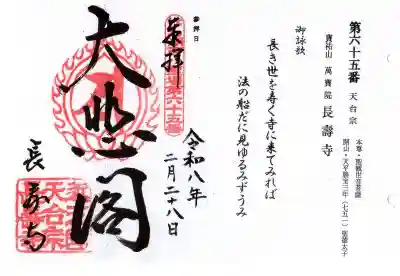 第六十五番 天台宗
本尊・聖観世音菩薩
開山・天平勝宝三年（七五一）聖徳太子
寶祐山 萬寶院 長壽寺
御詠歌
長き世を寿く寺に来てみれば
法の船だに見ゆるみずうみ
参拝日
奉拝
令和八年
二月二十八日
大悲閣
長寿寺